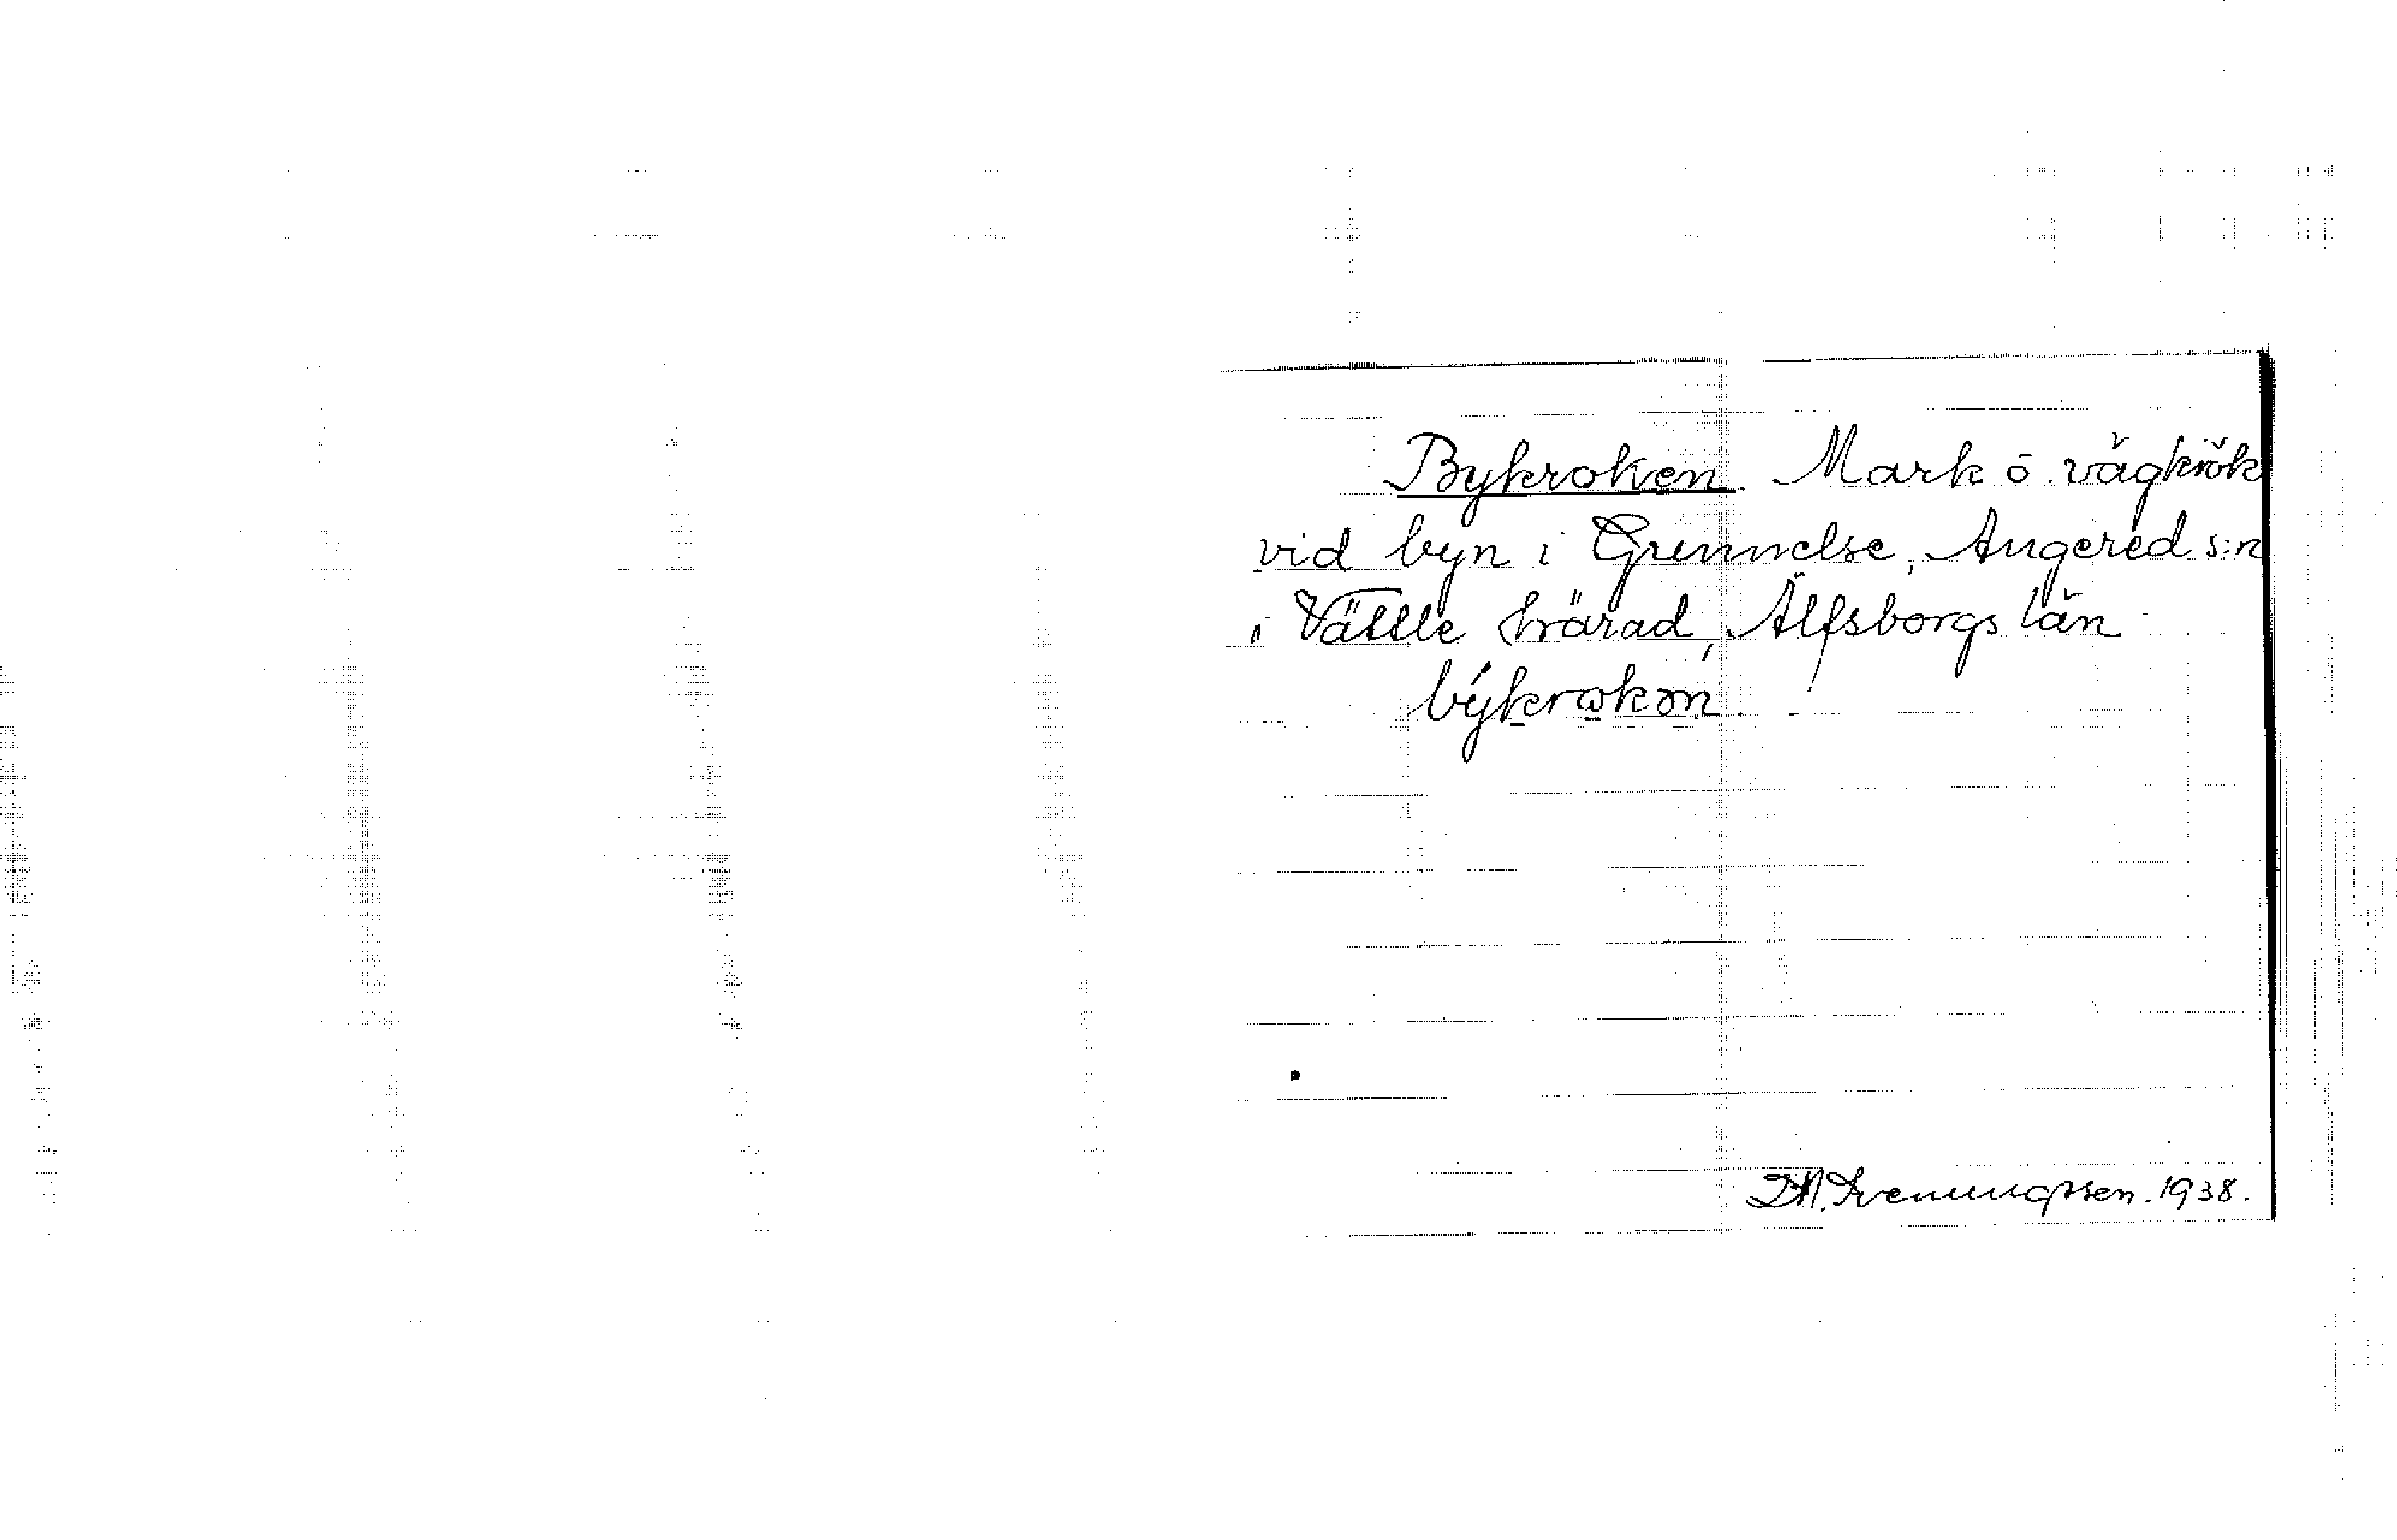 Bykroken. Mark o. vägkrök
vid byn i Grunnelse, Angered s:n
i Vättle härad, Älfsborgs län
býkrokən.
Svenungsson. 1938.